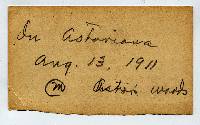 In Astoriana
Aug. 13, 1911
M Astor woods